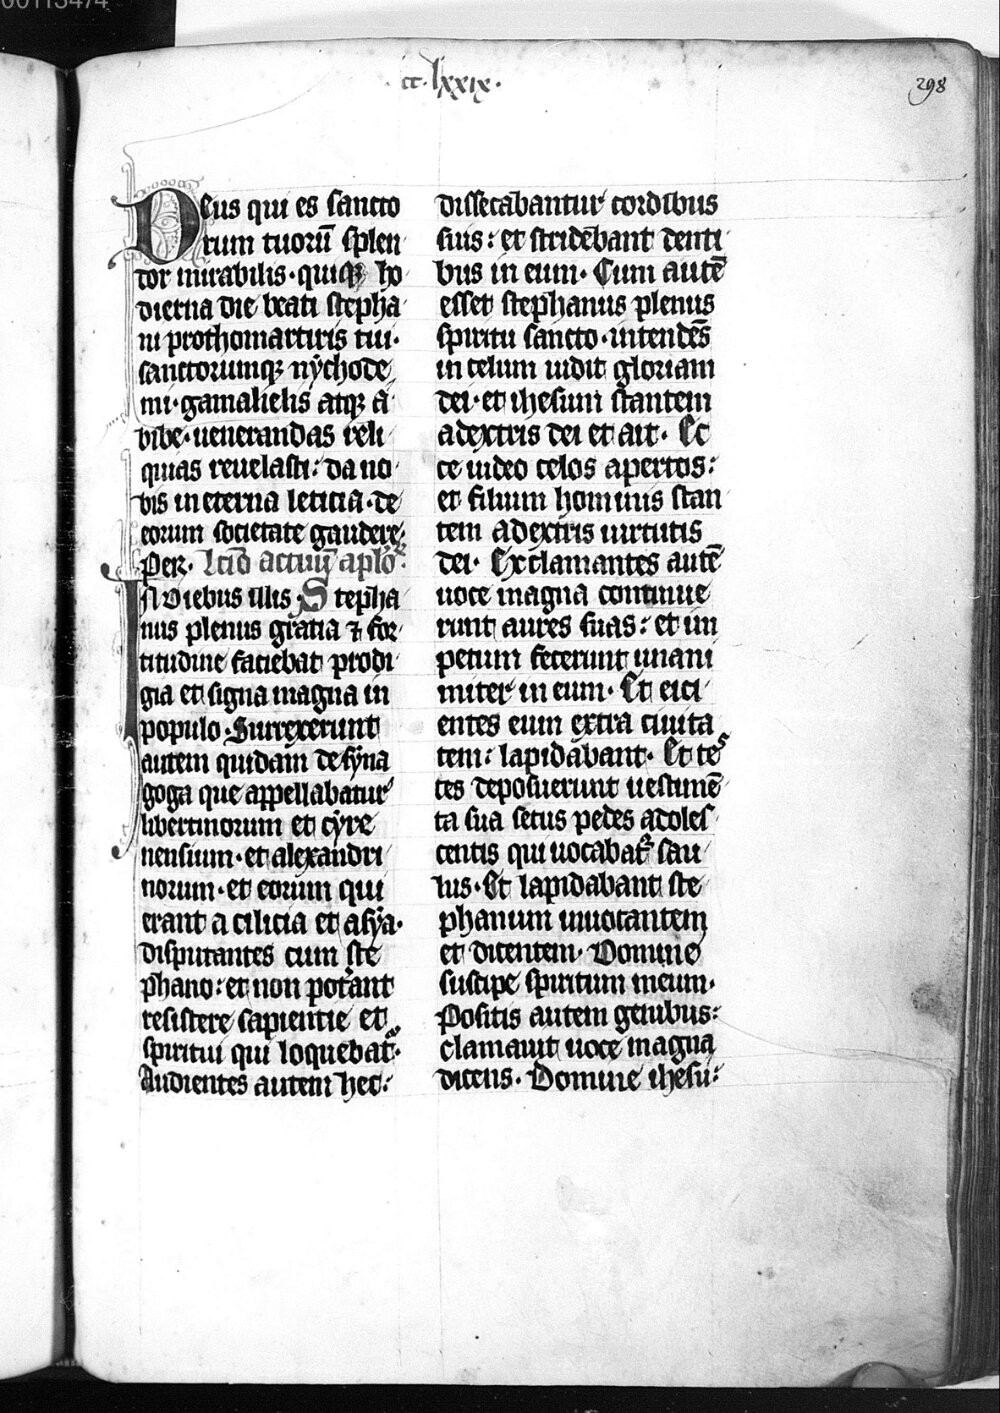 00113474
cc·lxxix·
298
Deus qui es sancto
rum tuoru̅ splen
dor mirabilis·quiqꝫ ho
dierna die beati stepha
ni prothomartiris tui·
sanctorumqꝫ nẏchode
mi·gamalielis atqꝫ a
bibe·uenerandas reli
quias reuelasti: da no
bis in eterna leticia·de
eorum societate gaudere·
Per· Lc̅io actuu̅ aplo̅ꝝ·
In diebus illis·Stepha
nus plenus gratia ⁊ for
titudine faciebat prodi
gia et signa magna in
populo·Surrexerunt
autem quidam de sẏna
goga que appellabatur
libertinorum et cẏre
nensium·et alexandri
norum·et eorum qui
erant a cilicia et asẏa·
disputantes cum ste
phano: et non poterant
resistere sapientie et
spiritui qui loquebat᷑·
Audientes autem hec:
dissecabantur cordibus
suis: et stridebant denti
bus in eum· Cum aute̅
esset stephanus plenus
spiritu sancto·intende̅s
in celum uidit gloriam
dei·et ihesum stantem
adextris dei et ait· Ec
ce uideo celos apertos:
et filium hominis stan
tem adextris uirtutis
dei· Exclamantes aute̅
uoce magna continue
runt aures suas: et im
petum fecerunt unani
miter in eum· Et eici
entes eum extra ciuita
tem: lapidabant· Et tes
tes deposuerunt uestime̅
ta sua secus pedes adoles
centis qui uocabat᷑ sau
lus·Et lapidabant ste
phanum inuocantem
et dicentem· Domine
suscipe spiritum meum·
Positis autem genibus:
clamauit uoce magna
dicens· Domine ihesu: